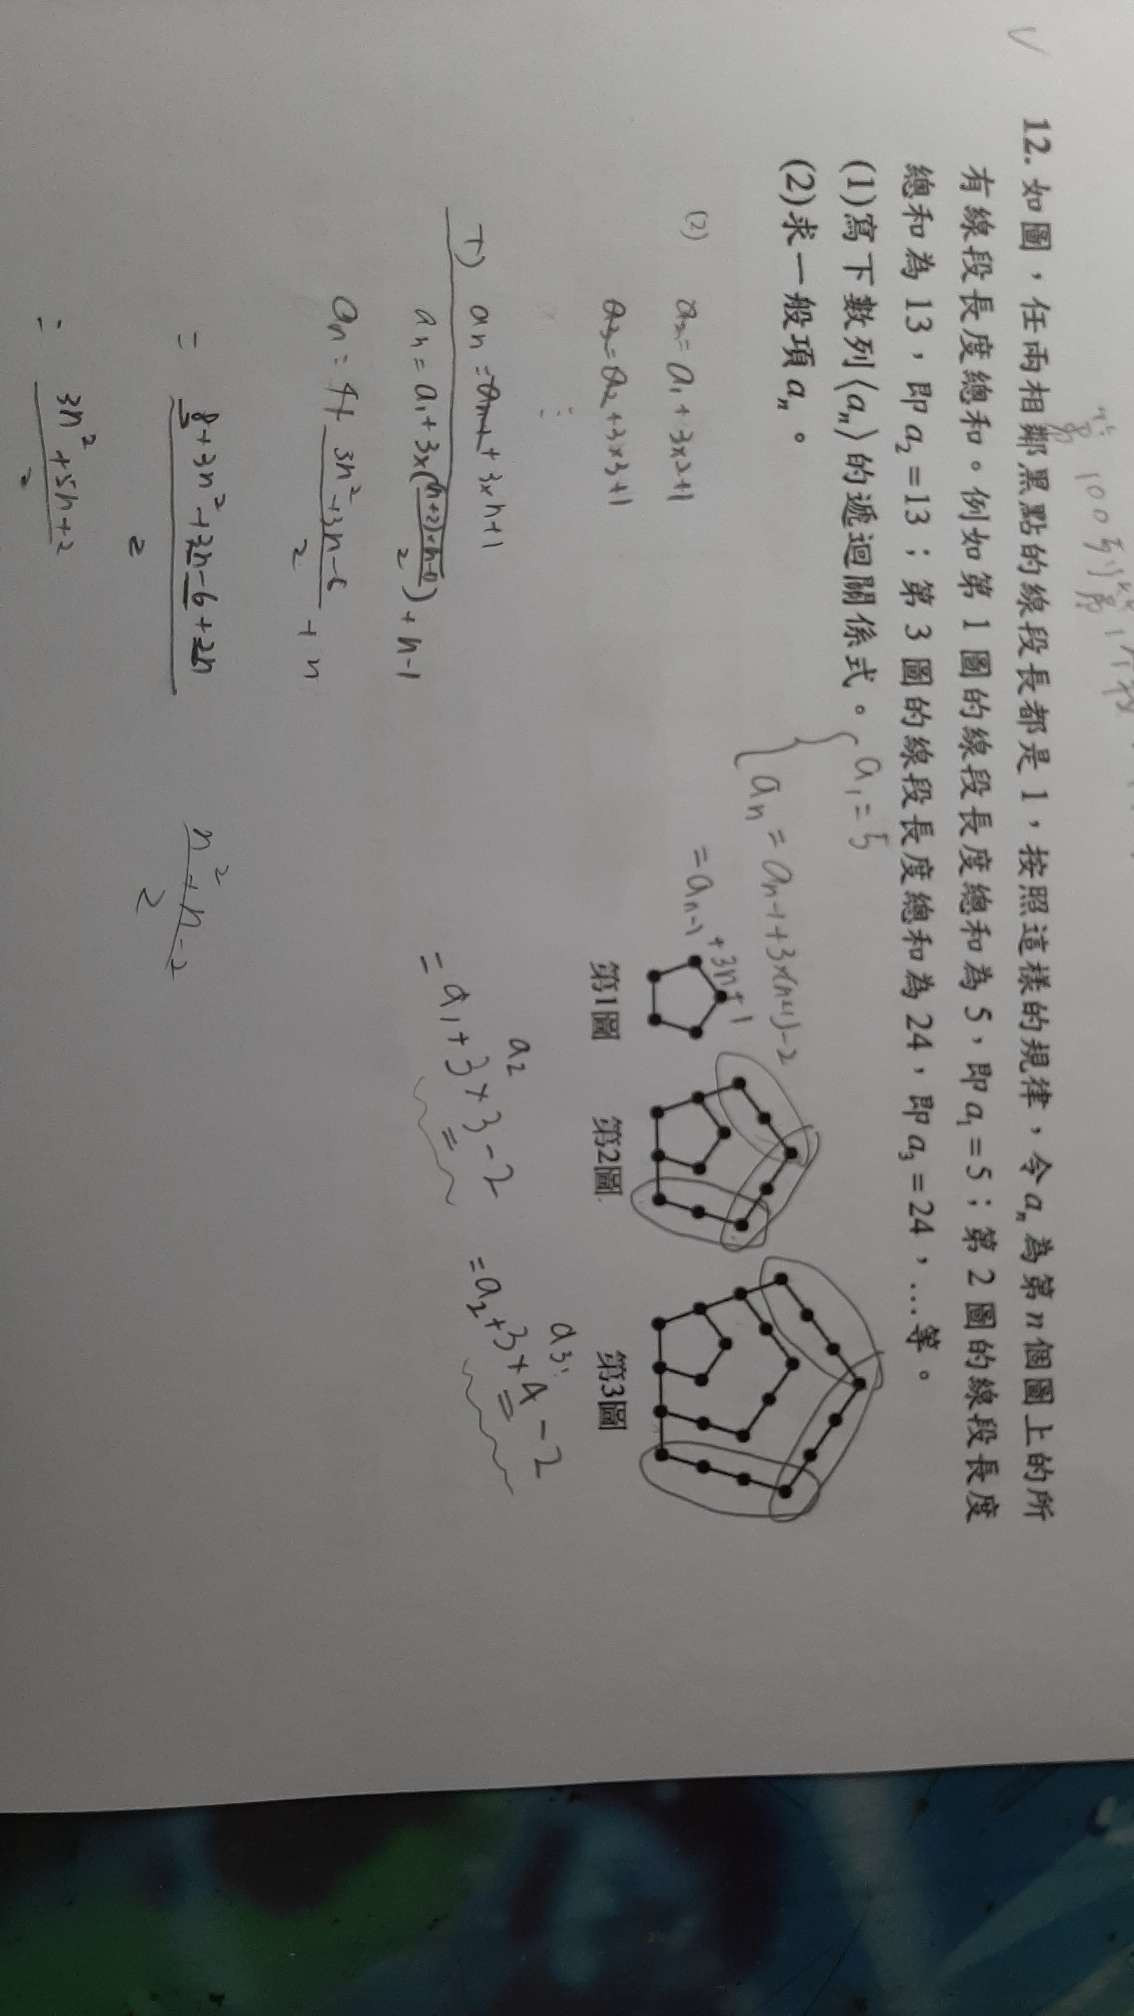 12. 如圖，任兩相鄰黑點的線段長都是 1，按照這樣的規律，令 aₙ 為第 n 個圖上的所
有線段長度總和。例如第 1 圖的線段長度總和為 5，即 a₁=5；第 2 圖的線段長度
總和為 13，即 a₂=13；第 3 圖的線段長度總和為 24，即 a₃=24，…等。
(1)寫下數列⟨aₙ⟩的遞迴關係式。
a₁=5
(2)求一般項 aₙ。
aₙ=aₙ₋₁+3×(n+1)-2
=aₙ₋₁+3n+1
第1圖
第2圖
第3圖
(2)
a₂=a₁+3×2+1
a₃=a₂+3×3+1
⋮
+) aₙ=aₙ₋₁+3×n+1
aₙ=a₁+3×((n+2)×(n-1)/2)+n-1
a₂
=a₁+3×3-2
a₃:
=a₂+3×4-2
aₙ=4+(3n²+3n-6)/2+n
=(8+3n²+3n-6+2n)/2
(n²+n-2)/2
=(3n²+5n+2)/2